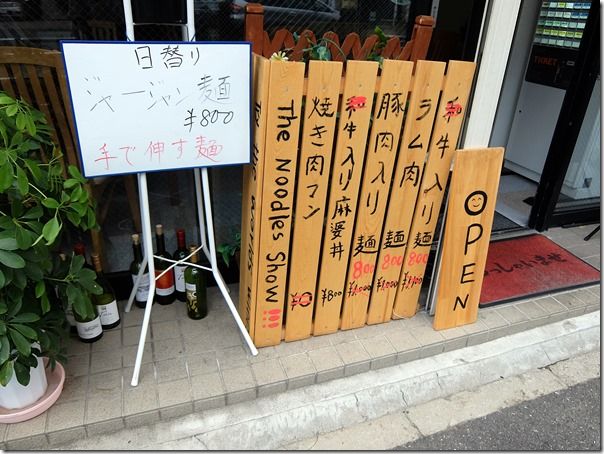 日替り
ジャージャン麺
¥800
手で伸す麺
The Noodles Show !!!
焼き肉マン
¥0
和牛入り麻婆井
¥800
豚肉入り麺
800
¥1,000
ラム肉麺
800
¥1,000
和牛入り麺
800
¥1,100
OPEN
っしゃいませ
TICKET